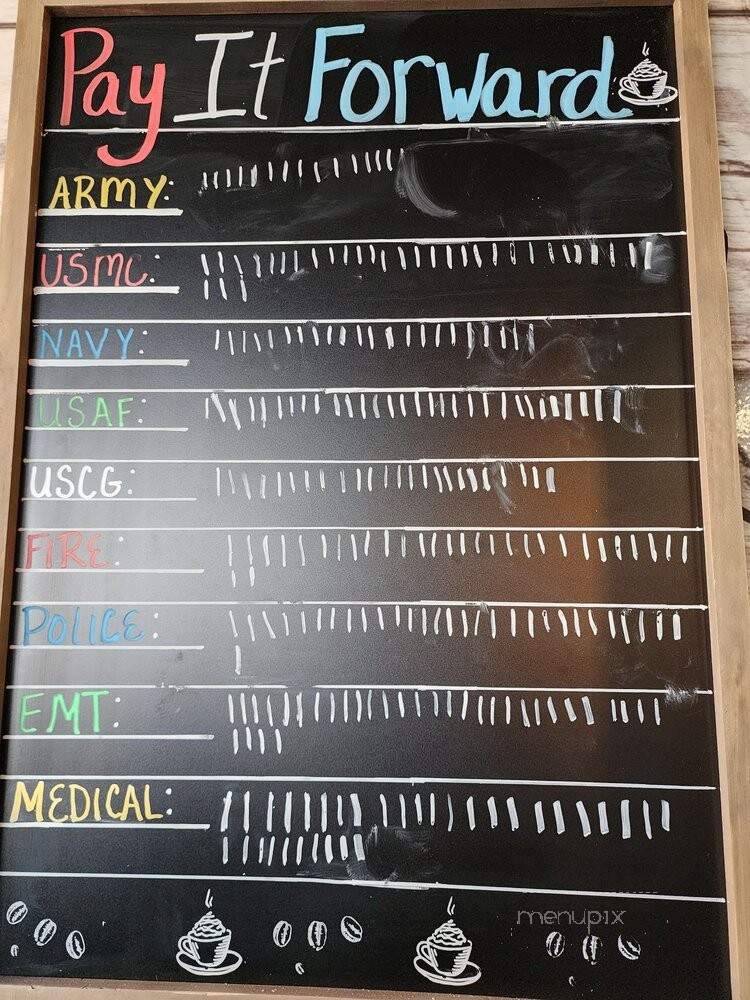 Pay It Forward
ARMY:
USMC:
NAVY:
USAF:
USCG:
FIRE:
POLICE:
EMT:
MEDICAL:
menupix